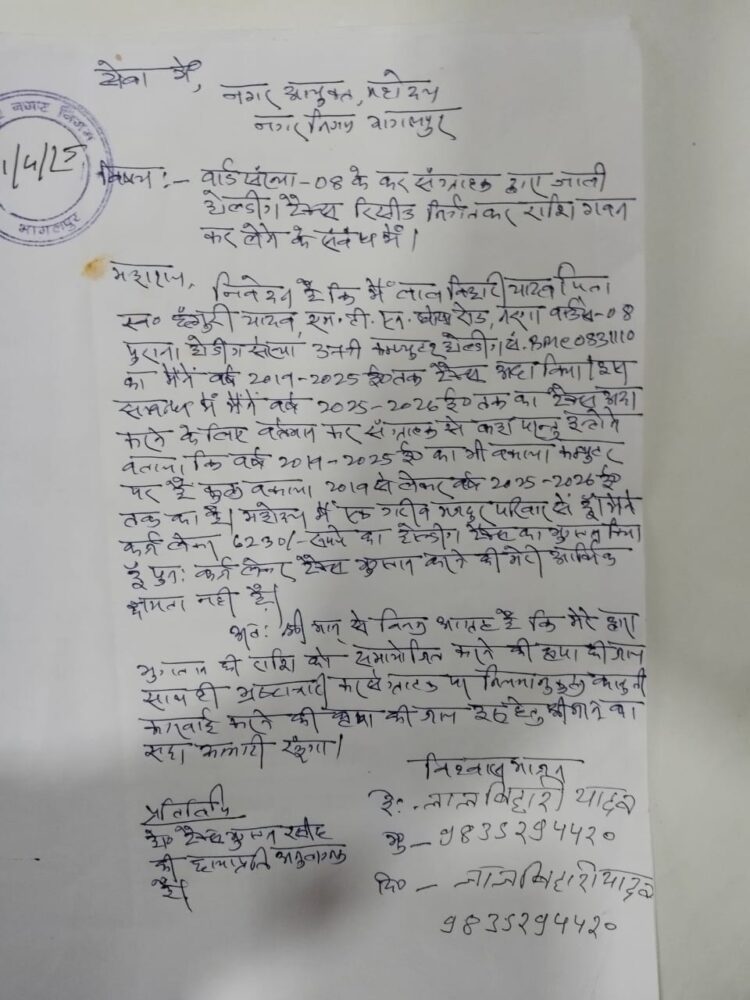 सेवा में,
नगर आयुक्त, महोदय
नगर निगम भागलपुर
1/4/25
भागलपुर
विषय:- वार्ड संख्या-08 के कर संग्राहक द्वारा जाली
होल्डींग टैक्स रिसीद निर्गत कर राशि गवन
कर लेने के संबंध में।
महाशय,
निवेदन है कि मैं लाल बिहारी यादव पिता
स्व० यादव, एम. टी. एन. घोष रोड, वार्ड-08
पुराना होडींग संख्या कम्प्युटर होल्डींग सं. BME0831110
का मैंने वर्ष 2019-2025 ई० तक टैक्स अदा किया। इस
सम्बन्ध में मैंने वर्ष 2025-2026 ई० तक का टैक्स अदा
करने के लिए वर्तमान कर संग्राहक से कहा परन्तु इन्होंने
बताया कि वर्ष 2019-2025 ई० का भी बकाया कम्प्युटर
पर है कुल बकाया 2019 से लेकर वर्ष 2025-2026 ई०
तक का है। महोदय मैं एक गरीब मजदुर परिवार से हुँ। मैंने
कर्ज लेकर 6230/- रूपये का होल्डींग टैक्स का भुगतान किया
हुँ पुन: कर्ज लेकर टैक्स भुगतान करने की मेरी आर्थिक
क्षमता नही है।
अत: श्री मान् से विनम्र आग्रह है कि मेरे द्वारा
भुगतान की राशि को समायोजित करने की कृपा की जाय
साथ ही भ्रष्टाचारी कर संग्राहक पर नियमानुकुल कानुनी
करवाई करने की कृपा की जाय इस हेतु श्रीमान का
सदा आभारी रहुंगा।
विश्वास भाजन
ह०:- लाल बिहारी यादव
मो - 9835294420
प्रतिलिपि
टैक्स भुगतान रसीद
की छायाप्रति अनुलग्नक
है।
नि० - लाल बिहारी यादव
9835294420